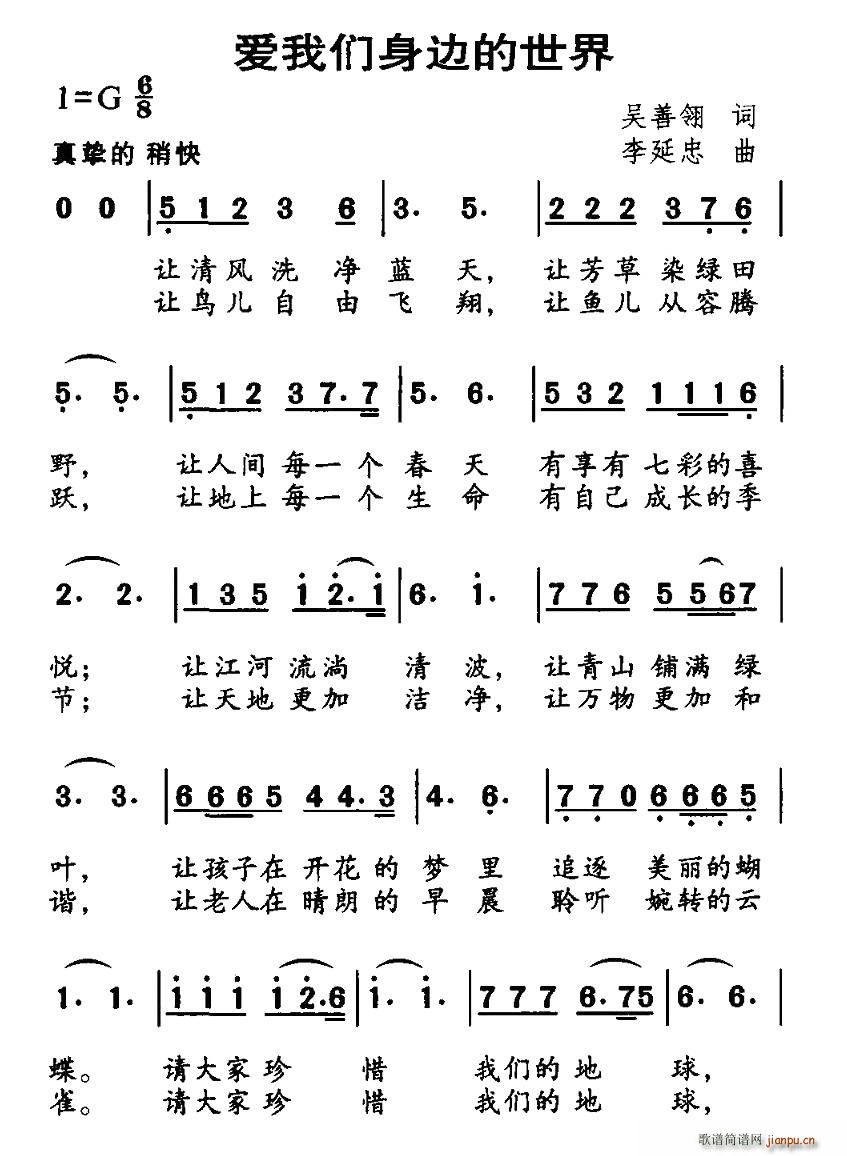 爱我们身边的世界
1=G 6/8
吴善翎 词
真挚的 稍快
李延忠 曲
0 0 | 5 1 2 3 6 | 3· 5· | 2 2 2 3 7 6 |
让清风洗净蓝天，让芳草染绿田
让鸟儿自由飞翔，让鱼儿从容腾
5· 5· | 5 1 2 3 7· 7 | 5· 6· | 5 3 2 1 1 1 6 |
野，让人间每一个春天有享有七彩的喜
跃，让地上每一个生命有自己成长的季
2· 2· | 1 3 5 1 2· 1 | 6· 1· | 7 7 6 5 5 6 7 |
悦；让江河流淌清波，让青山铺满绿
节；让天地更加洁净，让万物更加和
3· 3· | 6 6 6 5 4 4· 3 | 4· 6· | 7 7 0 6 6 6 5 |
叶，让孩子在开花的梦里追逐美丽的蝴
谐，让老人在晴朗的早晨聆听婉转的云
1· 1· | 1 1 1 1 2· 6 | 1· 1· | 7 7 7 6· 7 5 | 6· 6· |
蝶。请大家珍惜我们的地球，
雀。请大家珍惜我们的地球，
歌谱简谱网 jianpu.cn